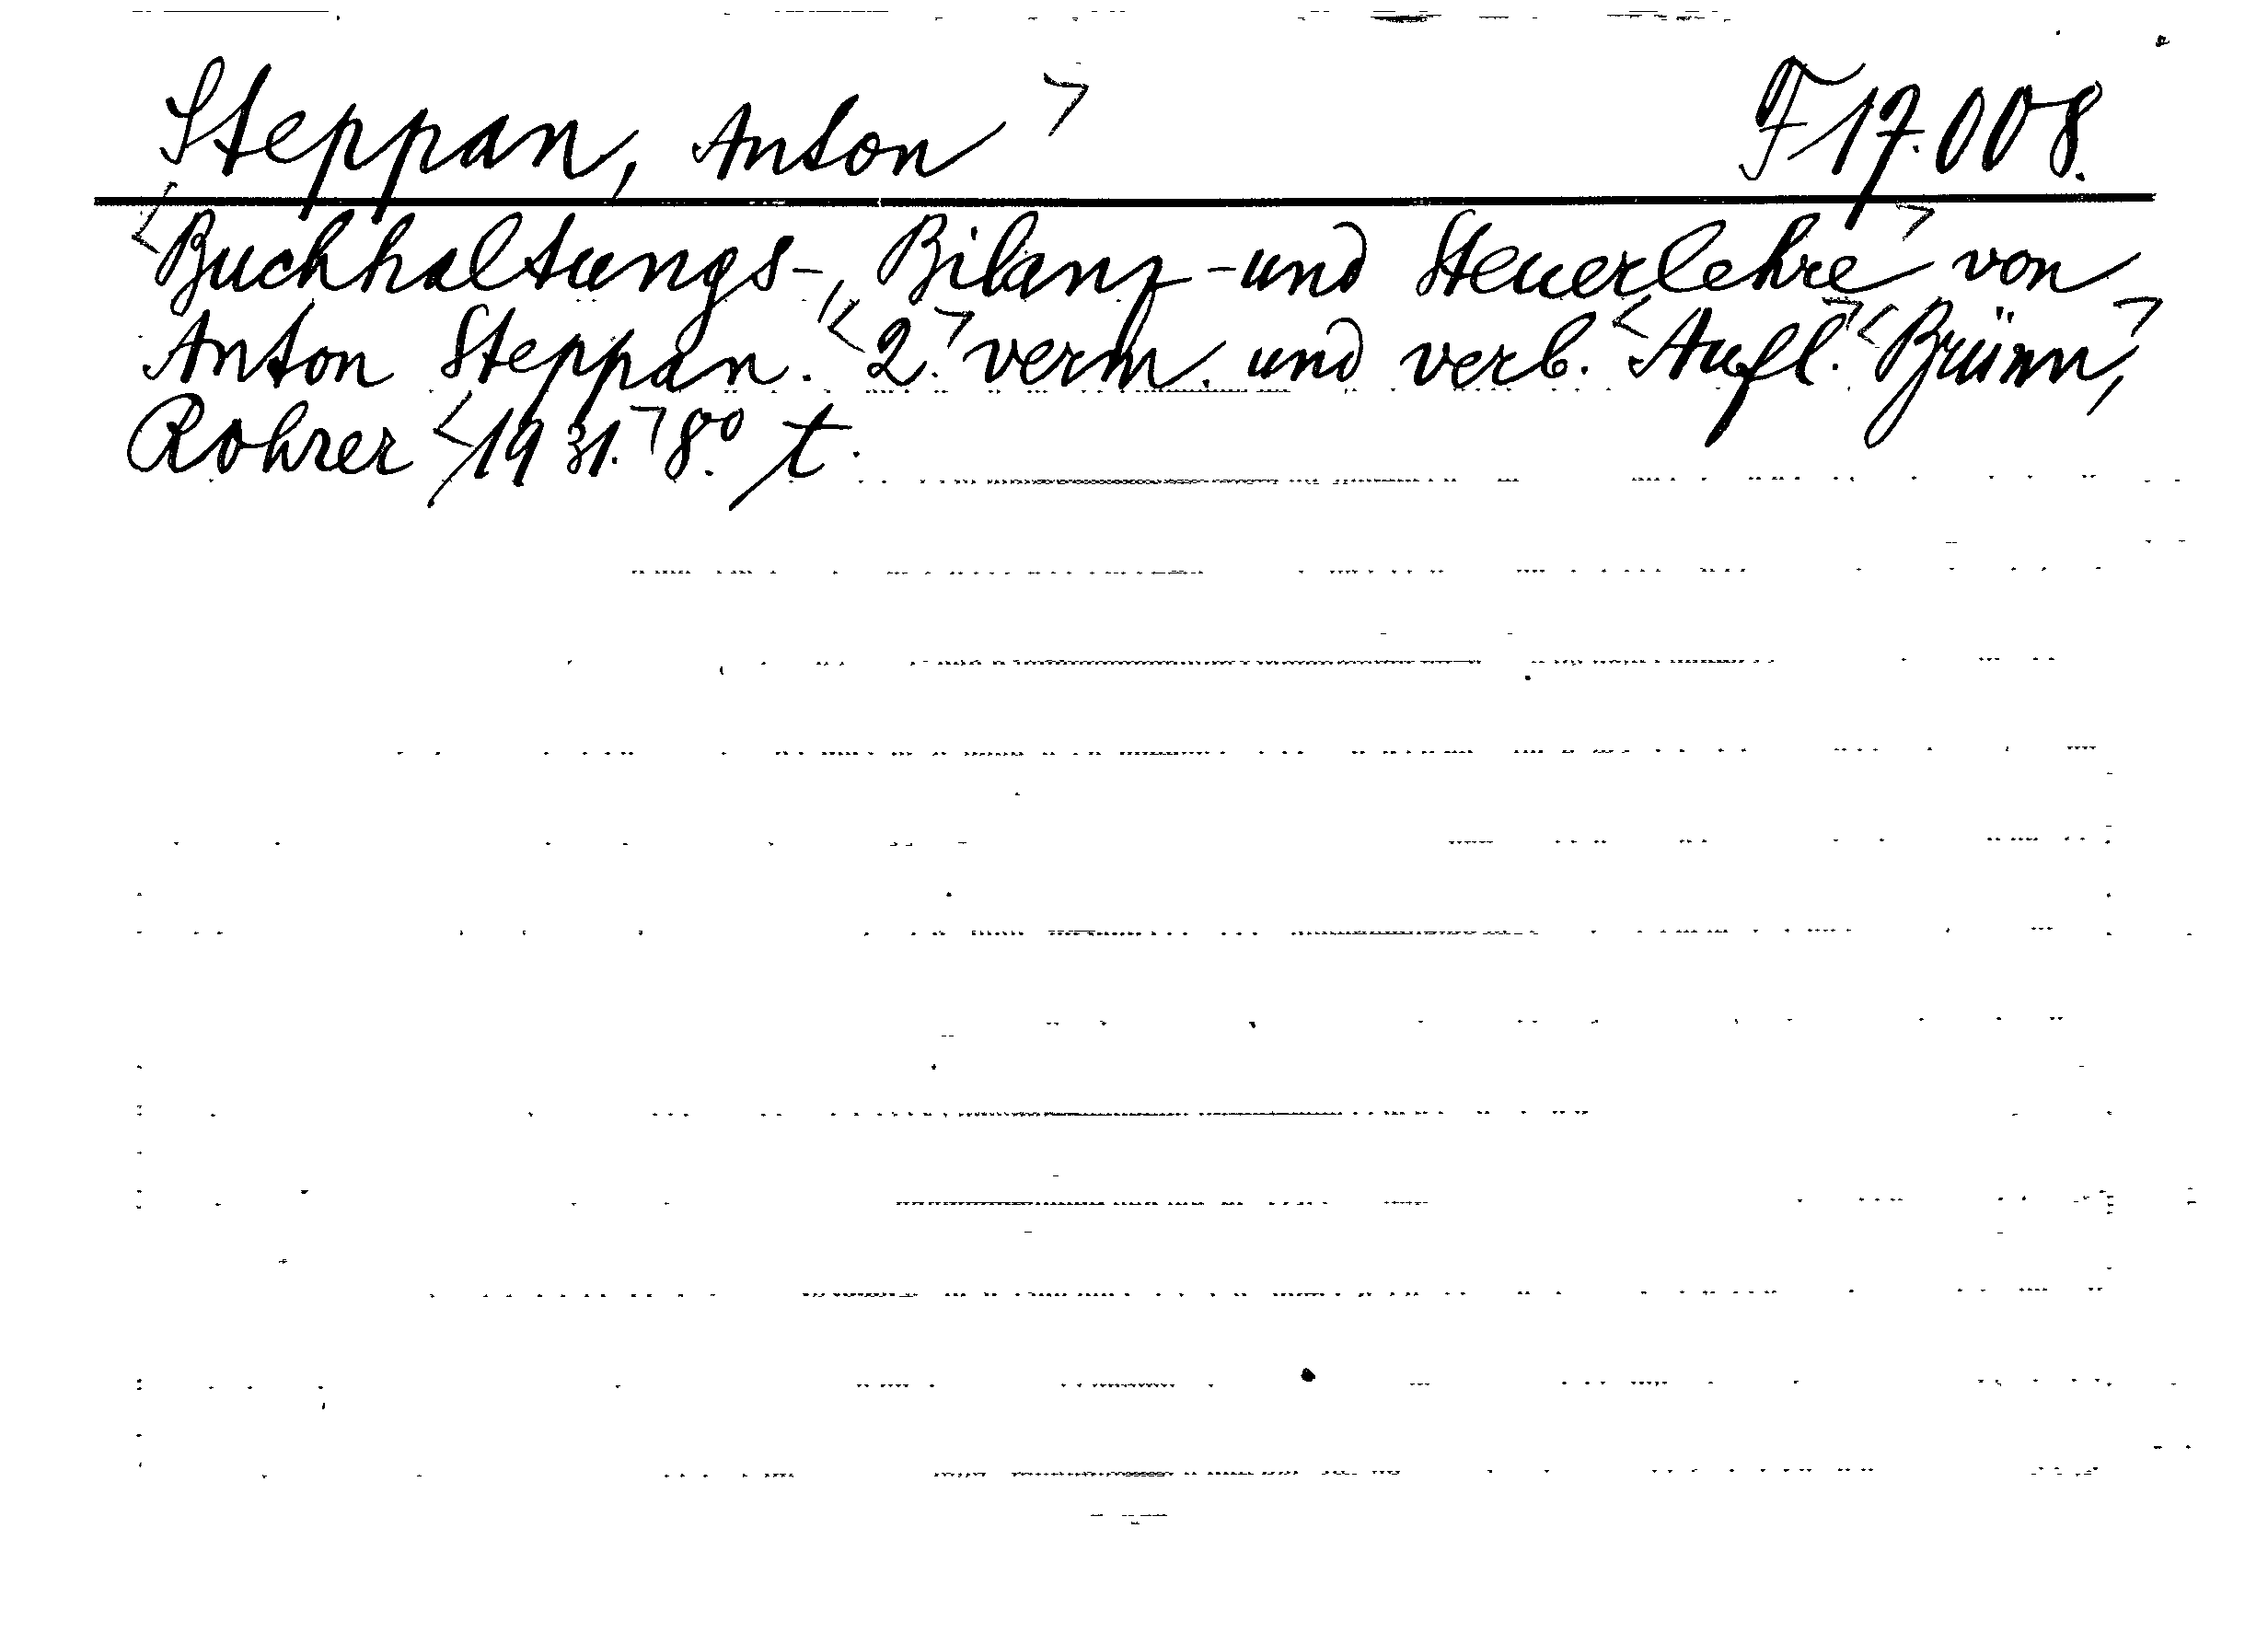 Steppan, Anton> F 17.008.
<Buchhaltungs-, Bilanz-und Steuerlehre> von
Anton Steppan. <2.> verm. und verb. <Aufl.> <Brünn,>
Rohrer <1931.> 8.° t.